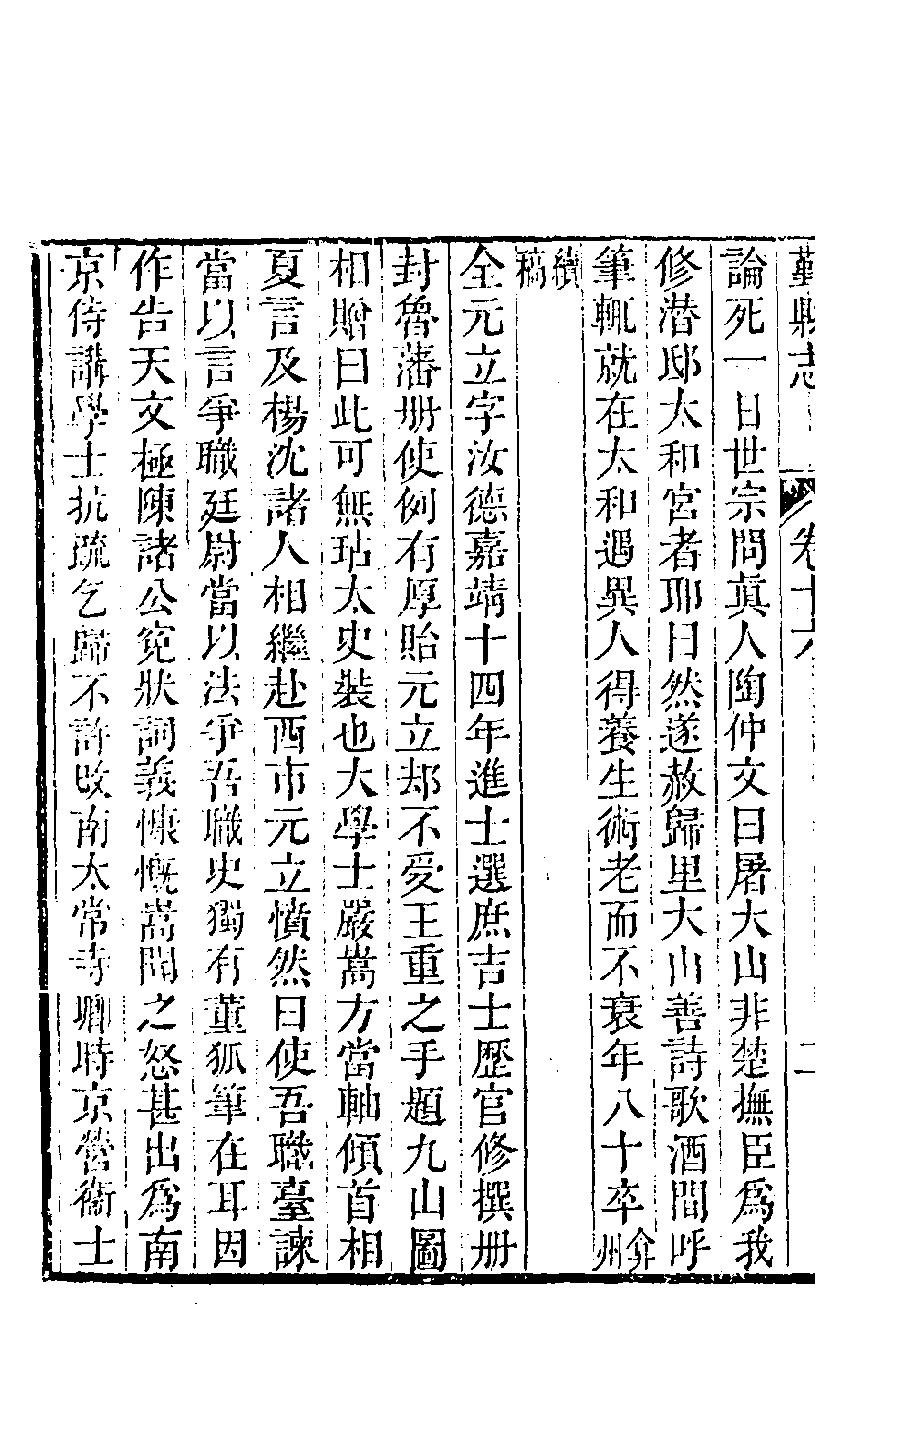 鄞縣志　卷十　二
論死一日世宗問眞人陶仲文曰屠大山非楚撫臣爲我
修潜邸太和宮者耶曰然遂赦歸里大山善詩歌酒間呼
筆輒就在太和遇異人得養生術老而不衰年八十卒弇州
續稿
全元立字汝德嘉靖十四年進士選庶吉士歷官修撰册
封魯藩册使例有厚貽元立却不受王重之手題九山圖
相贈曰此可無玷太史裝也大學士嚴嵩方當軸傾首相
夏言及楊沈諸人相繼赴西市元立憤然曰使吾職臺諫
當以言爭職廷尉當以法爭吾職史獨有董狐筆在耳因
作告天文極陳諸公寃狀詞義慷慨嵩聞之怒甚出爲南
京侍講學士抗疏乞歸不許改南太常寺卿時京營衞士